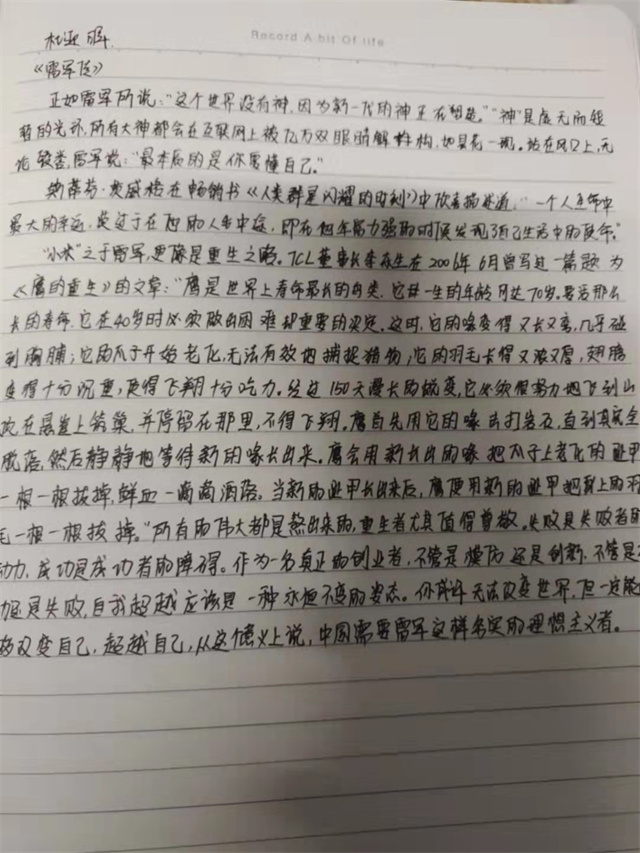 Record A bit Of life
杜亚
《雷军传》
正如雷军所说:“这个世界没有神,因为新一代的神正在塑造。”“神”是虚无而短
暂的光环,所有大神都会在互联网上被几万双眼睛解构,如昙花一现。站在风口上,无
论毁誉,雷军说:“最本质的是你要懂自己。”
斯蒂芬·茨威格在畅销书《人类群星闪耀的时刻》中故事描述道,“一个人生命中
最大的幸运,莫过于在他的人生中途,即在他年富力强的时候发现了自己生活中的使命。”
“小米”之于雷军,更像是重生之路。TCL董事长李东生在2006年6月曾写过一篇题为
《鹰的重生》的文章:“鹰是世界上寿命最长的鸟类,它一生的年龄可达70岁。要活那么
长的寿命,它在40岁时必须做出困难却重要的决定。这时,它的喙变得又长又弯,几乎碰
到胸脯;它的爪子开始老化,无法有效地捕捉猎物;它的羽毛长得又浓又厚,翅膀
变得十分沉重,使得飞翔十分吃力。经过150天漫长的蜕变,它必须很努力地飞到山
顶,在悬崖上筑巢,并停留在那里,不得飞翔。鹰首先用它的喙击打岩石,直到其完全
脱落,然后静静地等待新的喙长出来。鹰会用新长出的喙把爪子上老化的趾甲
一根一根拔掉,鲜血一滴滴洒落。当新的趾甲长出来后,鹰便用新的趾甲把身上的羽
毛一根一根拔掉。”所有的伟大都是熬出来的,重生者尤其值得尊敬。失败是失败者的
动力,成功是成功者的障碍。作为一名真正的创业者,不管是模仿还是创新,不管是
还是失败,自我超越应该是一种永恒不变的姿态。你或许无法改变世界,但一定能
够改变自己,超越自己,从这个意义上说,中国需要雷军这样务实的理想主义者。